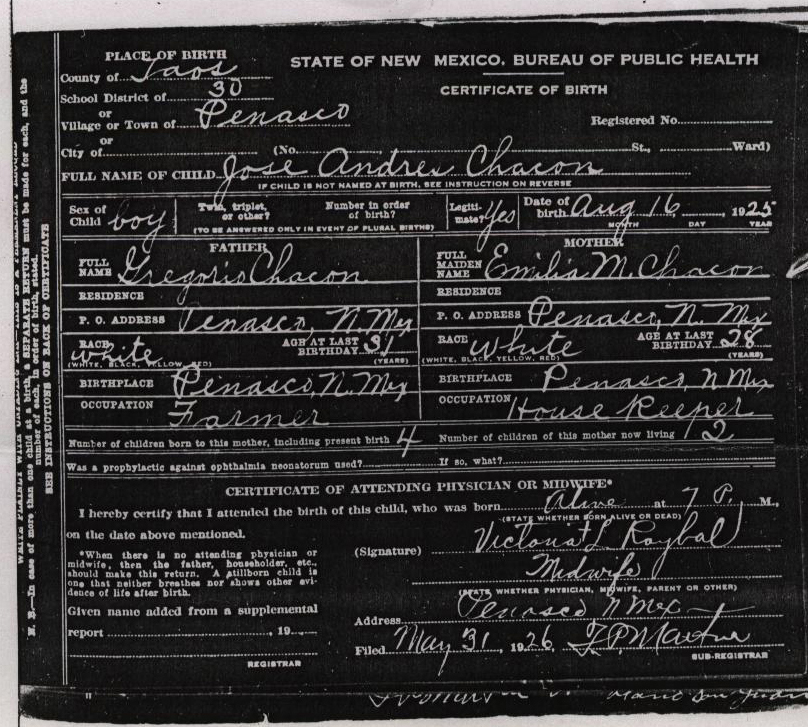 PLACE OF BIRTH
STATE OF NEW MEXICO. BUREAU OF PUBLIC HEALTH
County of Taos
CERTIFICATE OF BIRTH
School District of 30
or
Village or Town of Penasco
Registered No.
or
City of (No. St., Ward)
FULL NAME OF CHILD Jose Andres Chacon
IF CHILD IS NOT NAMED AT BIRTH, SEE INSTRUCTION ON REVERSE
Sex of Child boy
Twin, triplet, or other?
Number in order of birth?
(TO BE ANSWERED ONLY IN EVENT OF PLURAL BIRTHS)
Legiti-mate? Yes
Date of birth Aug 16, 1925
MONTH DAY YEAR
FATHER
FULL NAME Gregorio Chacon
RESIDENCE
P. O. ADDRESS Penasco, N. Mex
RACE white AGE AT LAST BIRTHDAY 31
(WHITE, BLACK, YELLOW, RED) (YEARS)
BIRTHPLACE Penasco, N. Mex
OCCUPATION Farmer
MOTHER
FULL MAIDEN NAME Emilia M. Chacon
RESIDENCE
P. O. ADDRESS Penasco, N. Mex
RACE White AGE AT LAST BIRTHDAY 28
(WHITE, BLACK, YELLOW, RED) (YEARS)
BIRTHPLACE Penasco, N Mex
OCCUPATION House Keeper
Number of children born to this mother, including present birth 4 Number of children of this mother now living 2
Was a prophylactic against ophthalmia neonatorum used? If so, what?
CERTIFICATE OF ATTENDING PHYSICIAN OR MIDWIFE*
I hereby certify that I attended the birth of this child, who was born Alive at 7 P. M.,
(STATE WHETHER BORN ALIVE OR DEAD)
on the date above mentioned.
(Signature) L. Roybal
Midwife
(STATE WHETHER PHYSICIAN, MIDWIFE, PARENT OR OTHER)
*When there is no attending physician or
midwife, then the father, householder, etc.,
should make this return. A stillborn child is
one that neither breathes nor shows other evi-
dence of life after birth.
Given name added from a supplemental
report , 19
REGISTRAR
Address Penasco N Mex
Filed May 31, 1926
SUB-REGISTRAR
N. B.—In case of more than one child at a birth, a SEPARATE RETURN must be made for each, and the
number of each, in order of birth, stated.
SEE INSTRUCTIONS ON BACK OF CERTIFICATE